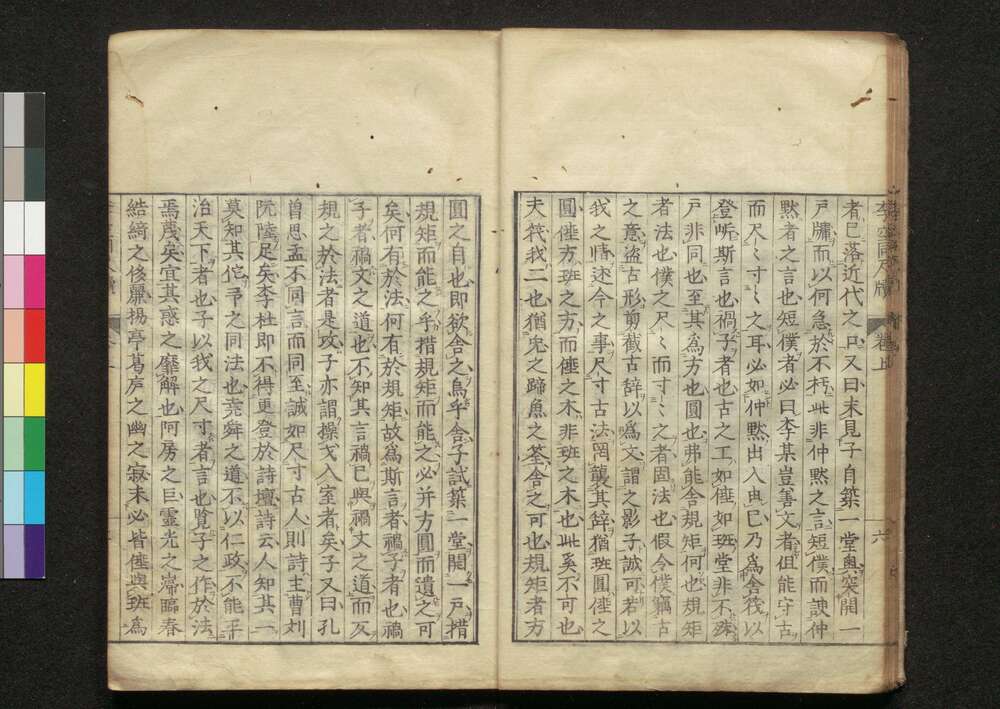 李空同尺牘 卷上 六
者已落近代之口又曰未見子自築一堂奧突開一
戶牖而以何急於不朽此非仲默之言短僕而諛仲
默者之言也短僕者必曰李某豈善文者但能守古
而尺〻寸〻之耳必如仲默出入由己乃爲舍筏以
登斯言也禍子者也古之工如倕如班堂非不殊
戶非同也至其爲方也圓也弗能舍規矩何也規矩
者法也僕之尺〻而寸〻之者固法也假令僕竊古
之意盜古形剪截古辭以爲文謂之影子誠可若以
我之情述今之事尺寸古法罔襲其辭猶班圓倕之
圓倕方班之方而倕之木非班之木也此奚不可也
夫筏我二也猶兔之蹄魚之筌舍之可也規矩者方
圓之自也即欲舍之烏乎舍子試築一堂開一戶措
規矩而能之乎措規矩而能之必并方圓而遺之可
矣何有於法何有於規矩故爲斯言者禍子者也禍
子者禍文之道也不知其言禍己與禍文之道而反
規之於法者是攻子亦謂操戈入室者矣子又曰孔
曾思孟不同言而同至誠如尺寸古人則詩主曹劉
阮陸足矣李杜即不得更登於詩壇詩云人知其一
莫知其佗予之同法也堯舜之道不以仁政不能平
治天下者也子以我之尺寸者言也覽子之作於法
焉蔑矣宜其惑之靡解也阿房之巨靈光之巋臨春
結綺之侈麗楊亭葛廬之幽之寂未必皆倕與班爲